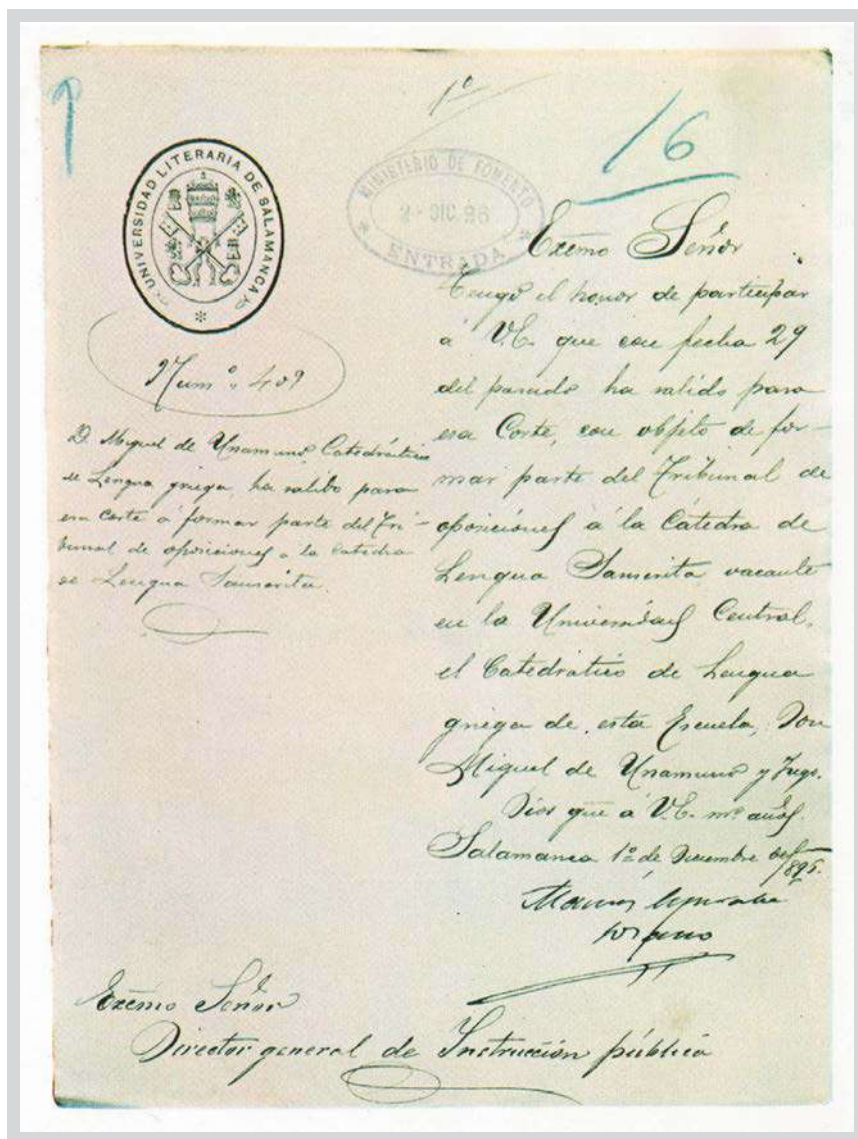 1º
16
UNIVERSIDAD LITERARIA DE SALAMANCA
MINISTERIO DE FOMENTO
2 - DIC. 96
ENTRADA
Numº. 409
D. Miguel de Unamuno Catedrático
de Lengua griega, ha salido para
esa Corte á formar parte del Tri-
bunal de oposiciones a la Catedra
de Lengua Sanscrita
Exemo Señor
Tengo el honor de participar
a V.E. que con fecha 29
del pasado ha salido para
esa Corte, con objeto de for-
mar parte del Tribunal de
oposiciones á la Cátedra de
Lengua Sanscrita vacante
en la Universidad Central,
el Catedrático de Lengua
griega de esta Escuela, Don
Miguel de Unamuno y Jugo.
Dios gue á V.E. ms. años.
Salamanca 1º de Diciembre de
Exemo Señor
Director general de Instrucción pública